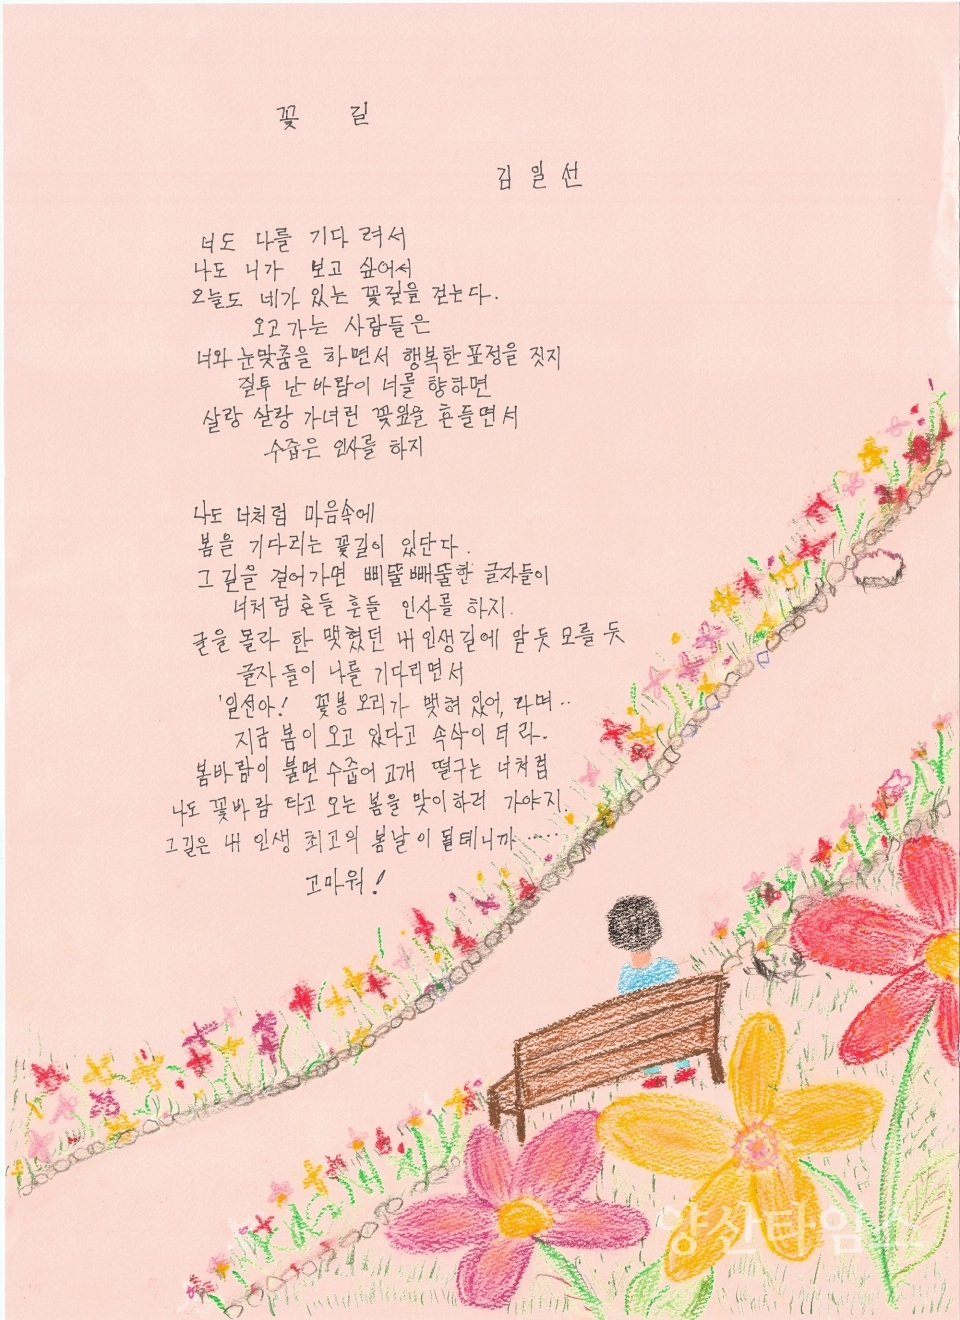 꽃 길
김 일 선
너도 나를 기다 려서
나도 니가 보고 싶어서
오늘도 네가 있는 꽃길을 걷는다.
오고 가는 사람들은
너와 눈맞춤을 하면서 행복한 표정을 짓지
질투 난 바람이 너를 향하면
살랑 살랑 가녀린 꽃잎을 흔들면서
수줍은 인사를 하지
나도 너처럼 마음속에
봄을 기다리는 꽃길이 있단다.
그 길을 걸어가면 삐뚤빼뚤한 글자들이
너처럼 흔들 흔들 인사를 하지.
글을 몰라 한 맺혔던 내 인생길에 알 듯 모를 듯
글자 들이 나를 기다리면서
'일선아! 꽃봉 오리가 맺혀 있어, 라며..
지금 봄이 오고 있다고 속삭이 더 라.
봄바람이 불면 수줍어 고개 떨구는 너처럼
나도 꽃바람 타고 오는 봄을 맞이하러 가야지.
그길은 내 인생 최고의 봄날이 될테니까.....
고마워!
양산타임스